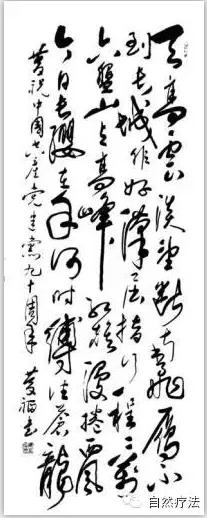 天高雲淡望斷南飛雁不
到长城非好漢屈指行程二萬
六盤山上高峰红旗漫捲西風
今日长纓在手何时縛住蒼龍
慶祝中國共産党建党九十周年 慶福书
自然疗法